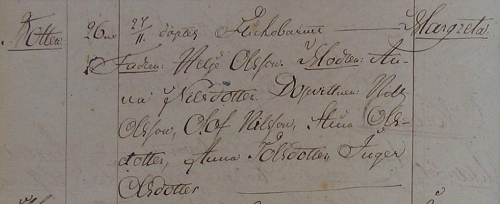 Totten. 26 nov 27/11 döptes Flickobarnet Margreta
Fadren: Helje Olsson. Modren: An-
na Nilsdotter. Dopvittnen: Nils
Olsson, Olof Nilsson, Stina Ols-
dotter, Anna Jolsdotter, Inger
Olsdotter